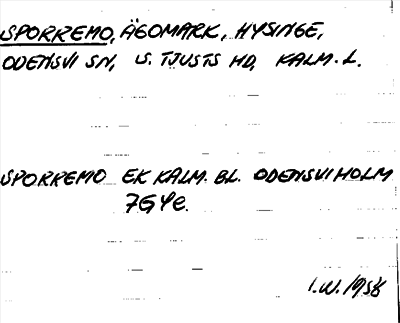 SPORREMO, ÄGOMARK, HYSINGE,
ODENSVI SN, S. TJUSTS HD, KALM. L.
SPORREMO EK KALM. BL. ODENSVIHOLM
7G4e.
I.W. 1958